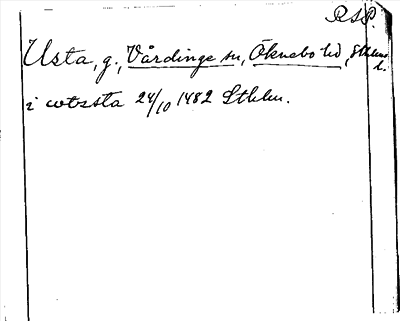 RSP.
Usta, g., Vårdinge sn, Öknebo hd, Sthlms l.
i wtssta 24/10 1482 Sthlm.